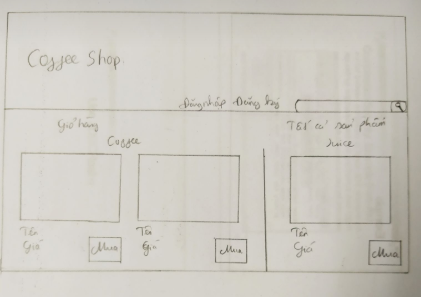 Coffee Shop
Đăng nhập Đăng ký
Giỏ hàng
Tất cả sản phẩm
Coffee
Juice
Tên
Giá
Mua
Tên
Giá
Mua
Tên
Giá
Mua